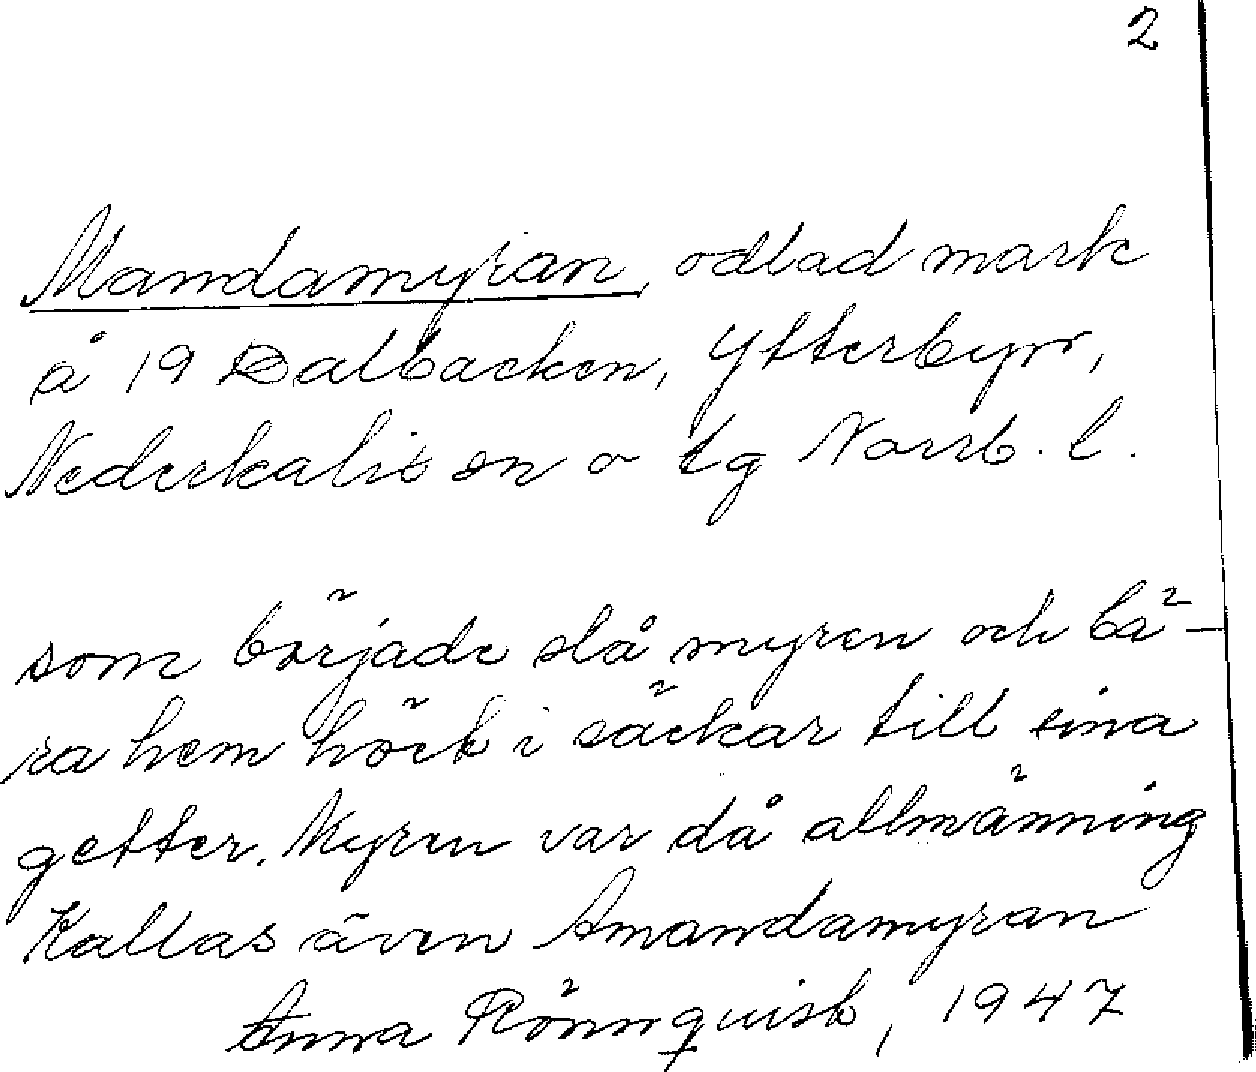 2
Mandamyran, odlad mark
å 19 Dalbacken, Ytterbyn,
Nederkalix sn o tg Norrb. l.
som började slå myren och bä-
ra hem höet i säckar till sina
getter. Myren var då allmänning
Kallas även Amandamyran
Anna Rönnquist, 1947